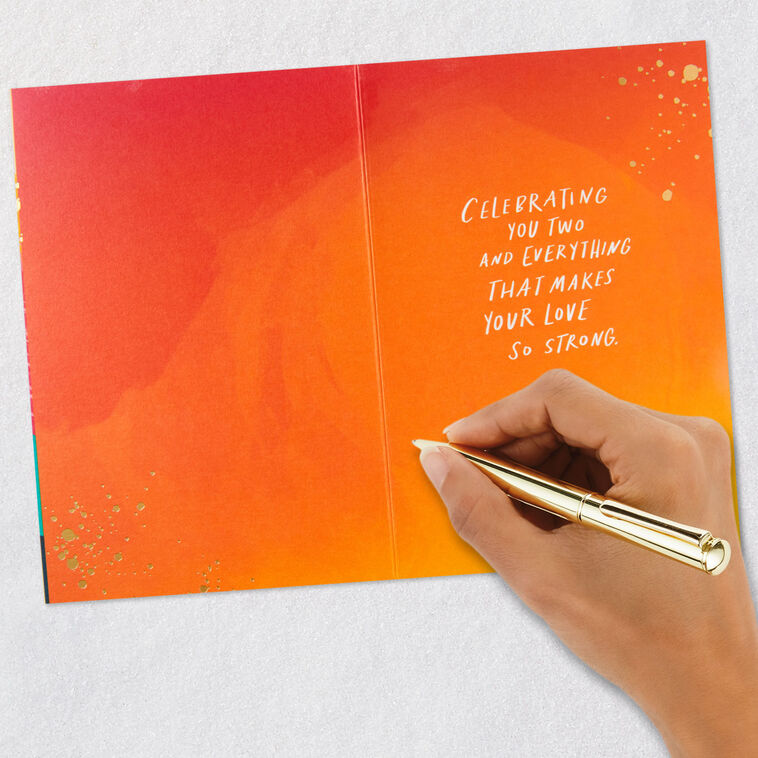 CELEBRATING
YOU TWO
AND EVERYTHING
THAT MAKES
YOUR LOVE
SO STRONG.